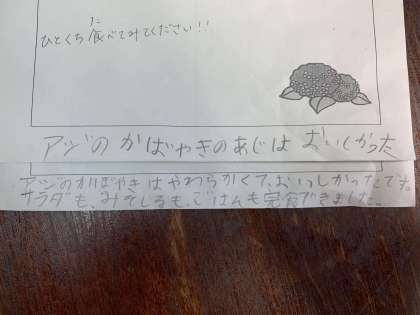 ひとくち食べてみてください!!
アジの かばやきのあじは おいしかった
アジのかばやきはやわらかくて、おいしかったです。
サラダも、みそしるも、ごはんも完食できました。